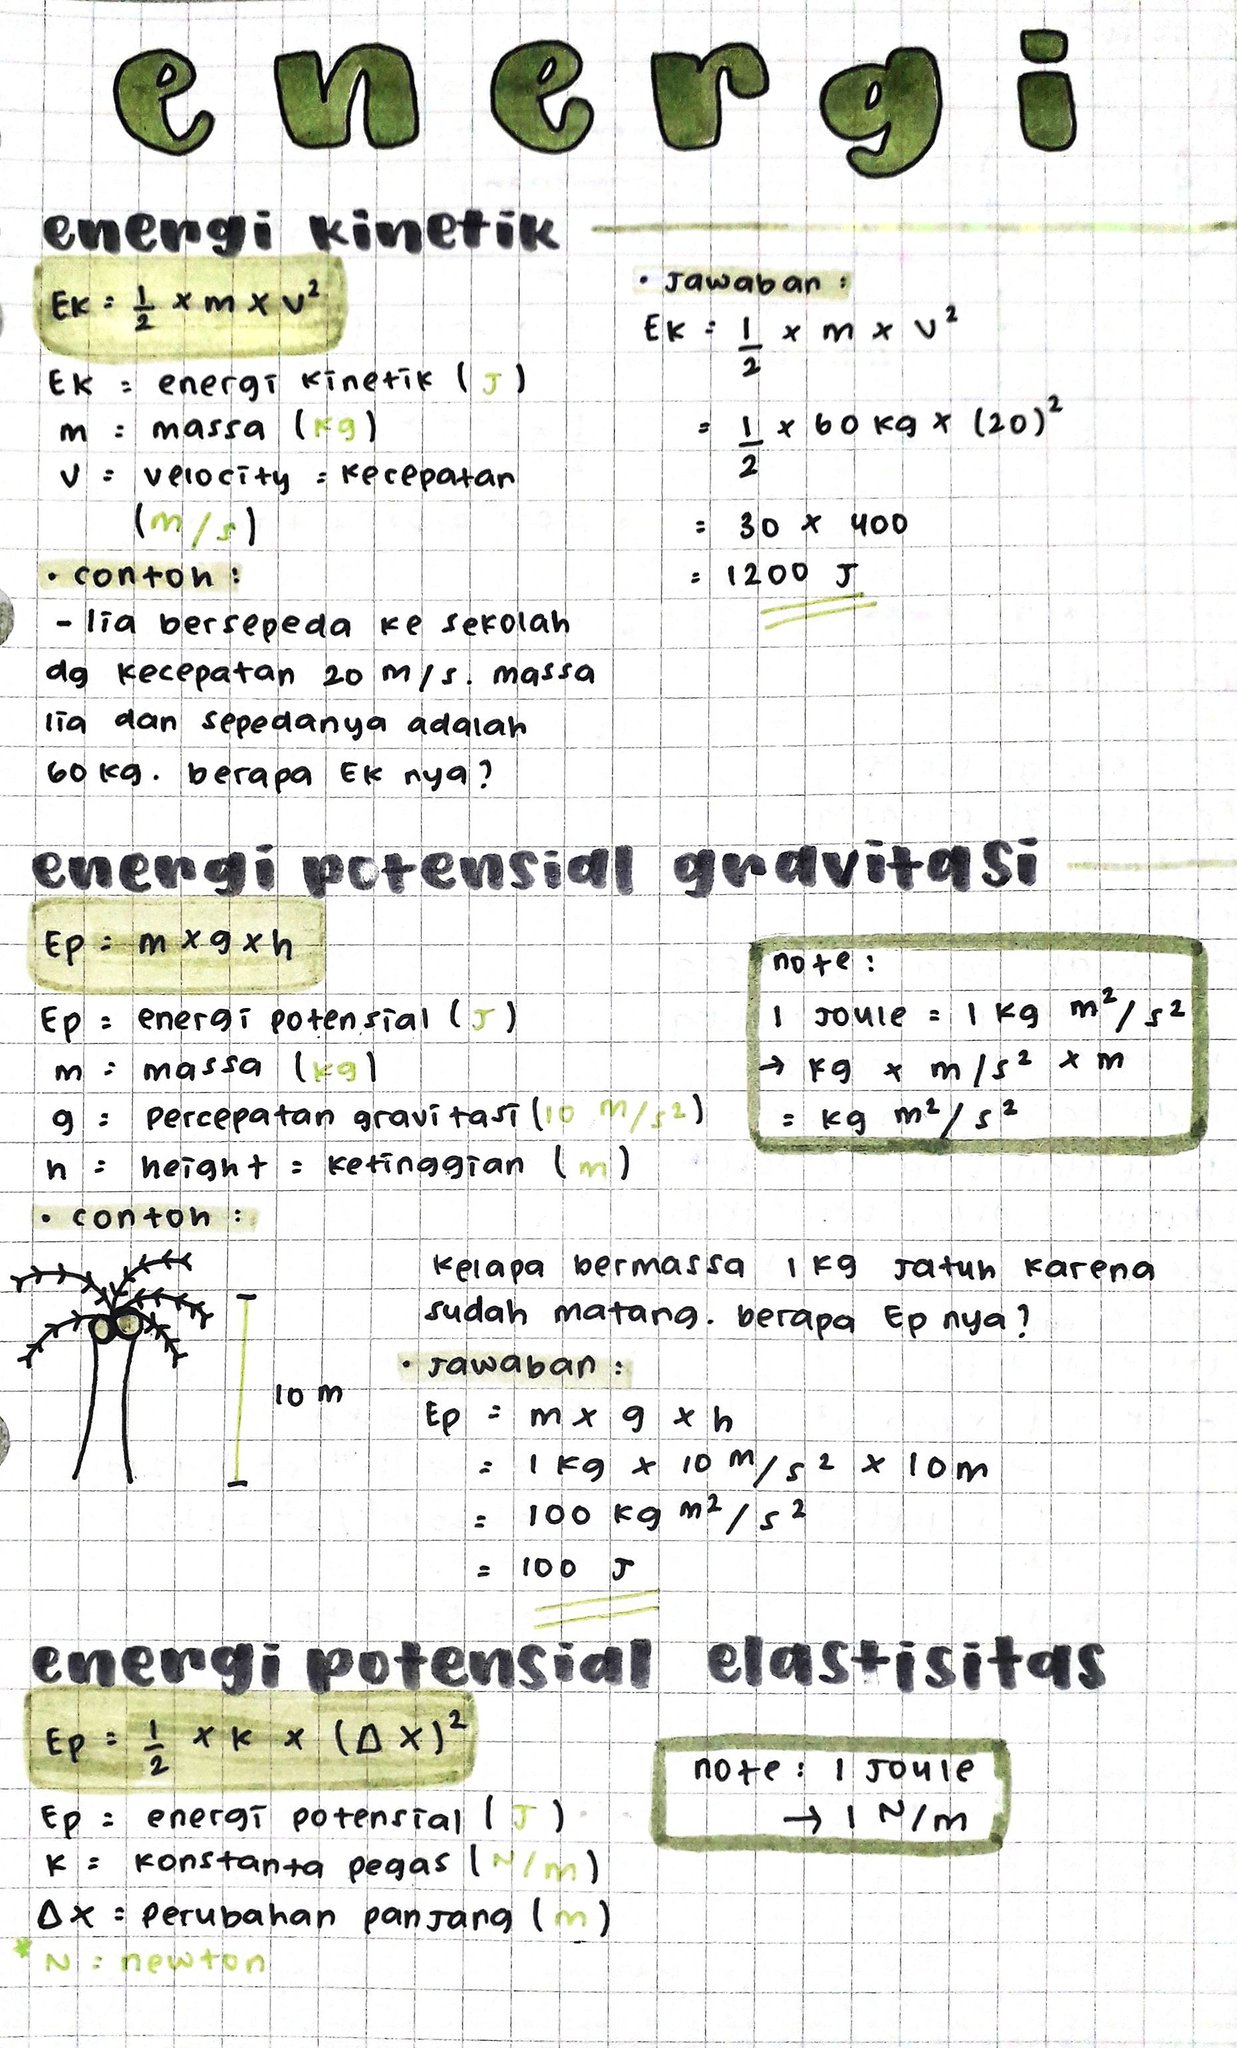 energi
energi kinetik
Ek = 1/2 x m x v²
Ek = energi kinetik (J)
m = massa (kg)
v = velocity = kecepatan
(m/s)
• contoh :
- lia bersepeda ke sekolah
dg kecepatan 20 m/s. massa
lia dan sepedanya adalah
60 kg. berapa Ek nya?
• Jawaban :
Ek = 1/2 x m x v²
= 1/2 x 60 kg x (20)²
= 30 x 400
= 1200 J
energi potensial gravitasi
Ep = m x g x h
Ep = energi potensial (J)
m = massa (kg)
g = percepatan gravitasi (10 m/s²)
h = height = ketinggian (m)
note :
1 Joule = 1 kg m²/s²
→ kg x m/s² x m
= kg m²/s²
• contoh :
10 m
kelapa bermassa 1 kg jatuh karena
sudah matang. berapa Ep nya?
• Jawaban :
Ep = m x g x h
= 1 kg x 10 m/s² x 10 m
= 100 kg m²/s²
= 100 J
energi potensial elastisitas
Ep = 1/2 x k x (Δx)²
Ep = energi potensial (J)
k = konstanta pegas (N/m)
Δx = perubahan panjang (m)
* N = newton
note : 1 Joule
→ 1 N/m